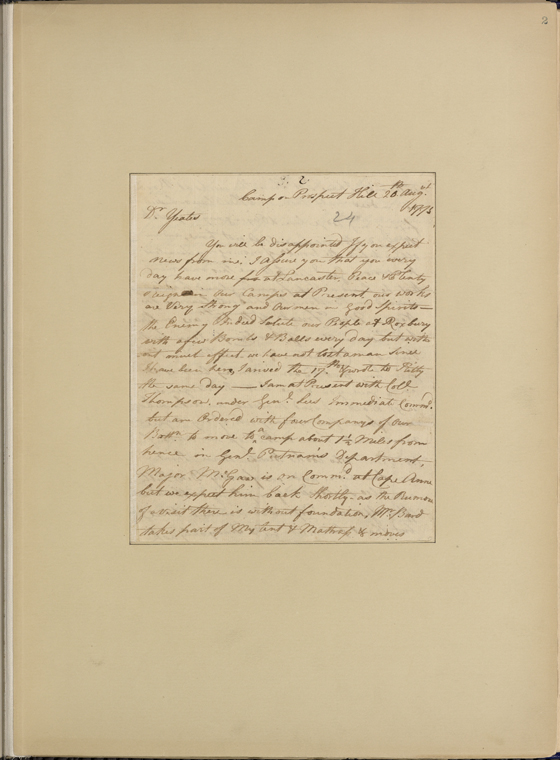 2
2.
Camp on Prospect Hill 20th Augt.
1775
24
Dr. Yeates
You will be disappointed If you expect
news from me. I assure you that you every
day have more fun at Lancaster. Peace & Plenty
reigns in our Camps at Present our works
are Very Strong and our men in Good Spirits—
the Enemy Indeed Salute our People at Roxbury
with a few Bombs & Balls every day but with
out much effect. we have not lost a man Since
I have been here, I arrived the 17th & wrote to Patty
the same day — I am at Present with Coll.
Thompson, under Genl. Lees Immediat Commd.
but am Ordered with four Companys of our
Battn. to move to a camp about 1½ Miles from
hence in Genl. Putnam's Department,
Major Magaw is on Commd. at Cape Anne
but we expect him back Shortly as the Rumour
of a visit there is without foundation, Mr. Bard
takes part of My tent & Matrass & moves